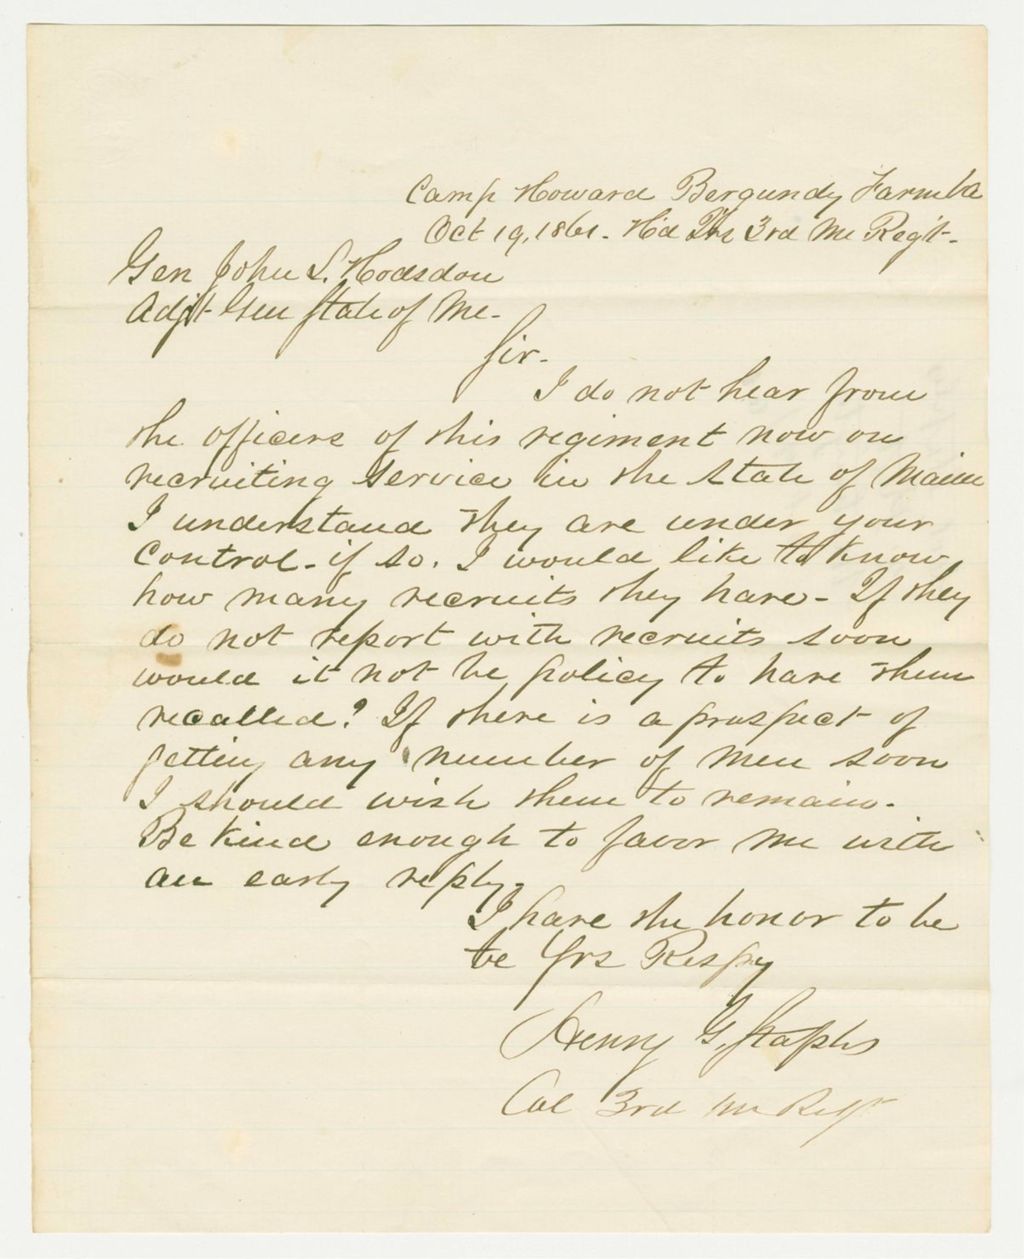 Camp Howard Bergundy Farm Va
Oct 19, 1861. H'd Qrs 3rd Me Reg't.
Gen John L. Hodsdon
Adjt Gen State of Me.
Sir.
I do not hear from
the officers of this regiment now on
recruiting service in the State of Maine
I understand they are under your
control - if so. I would like to know
how many recruits they have - If they
do not report with recruits soon
would it not be policy to have them
recalled? If there is a prospect of
getting any number of men soon
I should wish them to remain.
Be kind enough to favor me with
an early reply.
I have the honor to be
be Yrs Respy
Henry G. Staples
Col 3rd Me Regt